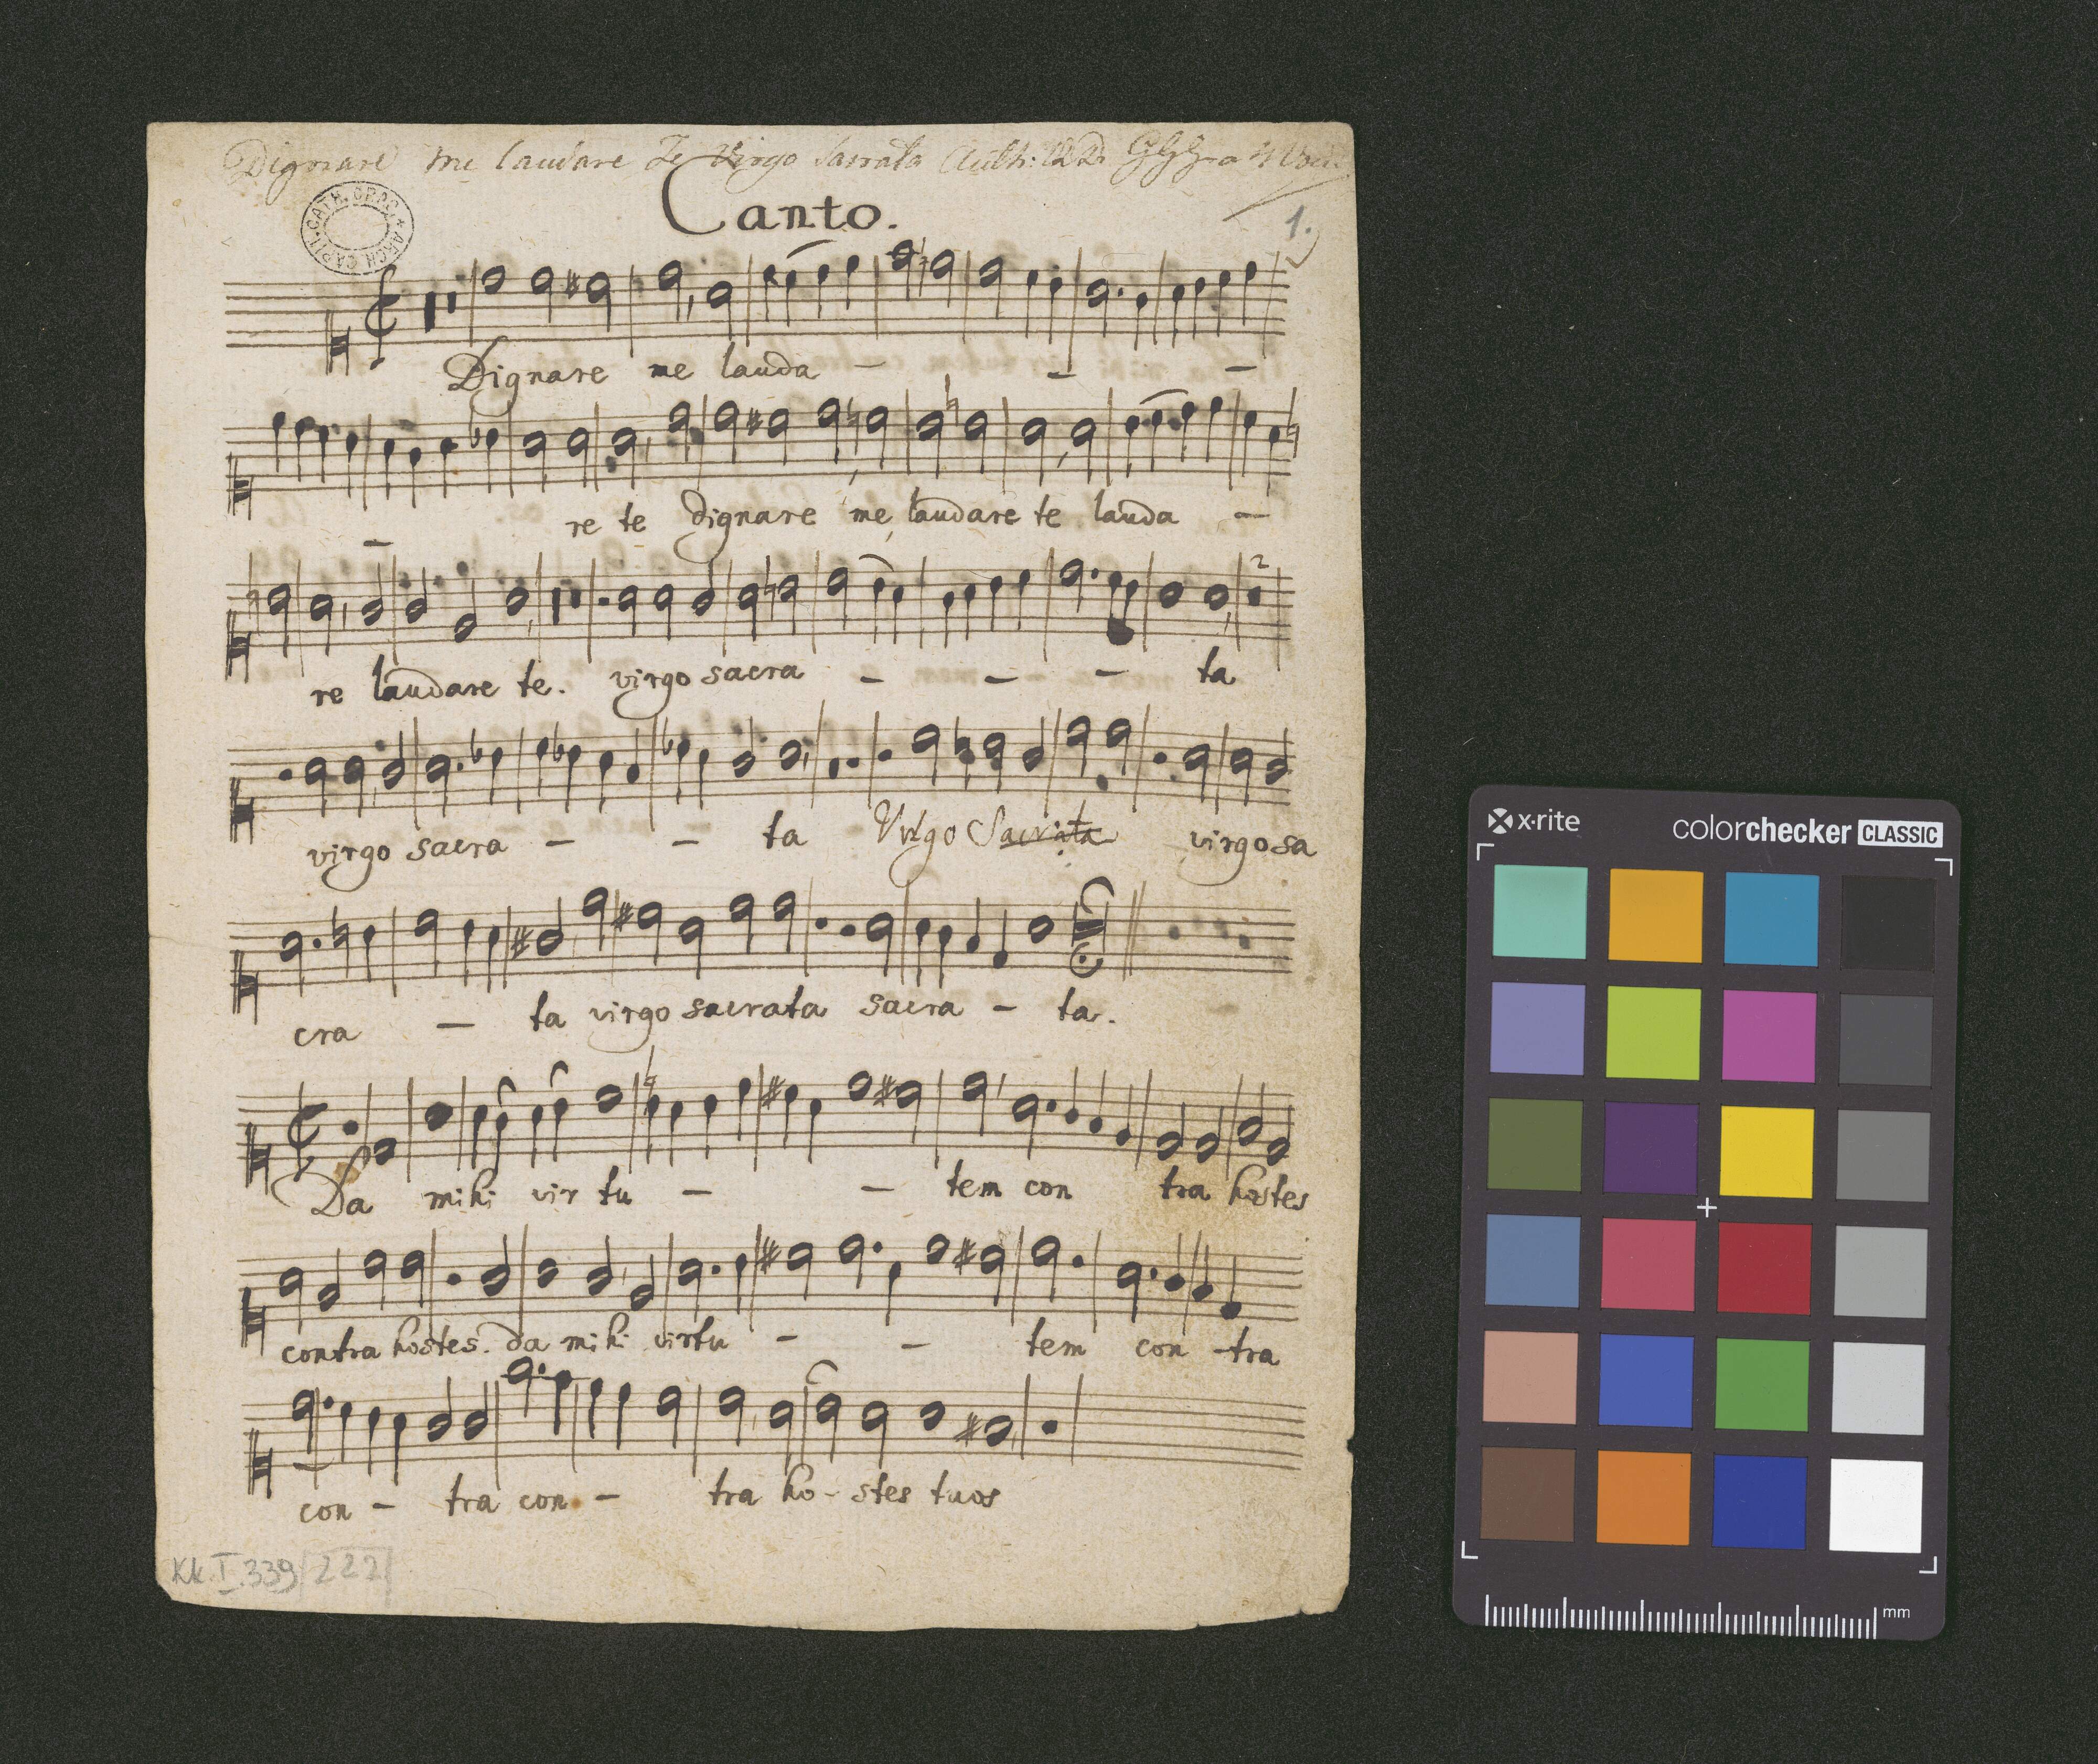 Dignare me laudare Te Virgo Sacrata Auth: GGG a 4 Voc:
Canto.
1.
CAPIT. CATH. CRAC. ARCH.
Dignare me lauda -
- re te dignare me laudare te lauda -
re laudare te. virgo sacra - - - ta
2
virgo sacra - - ta Virgo Sacrata virgo sa
cra - ta virgo sacrata sacra - ta.
Da mihi vir tu - - tem con tra hostes
contra hostes. da mihi virtu - - tem con - tra
con - tra con - tra ho - stes tuos
Kk.I.339/222
x·rite
colorchecker CLASSIC
mm